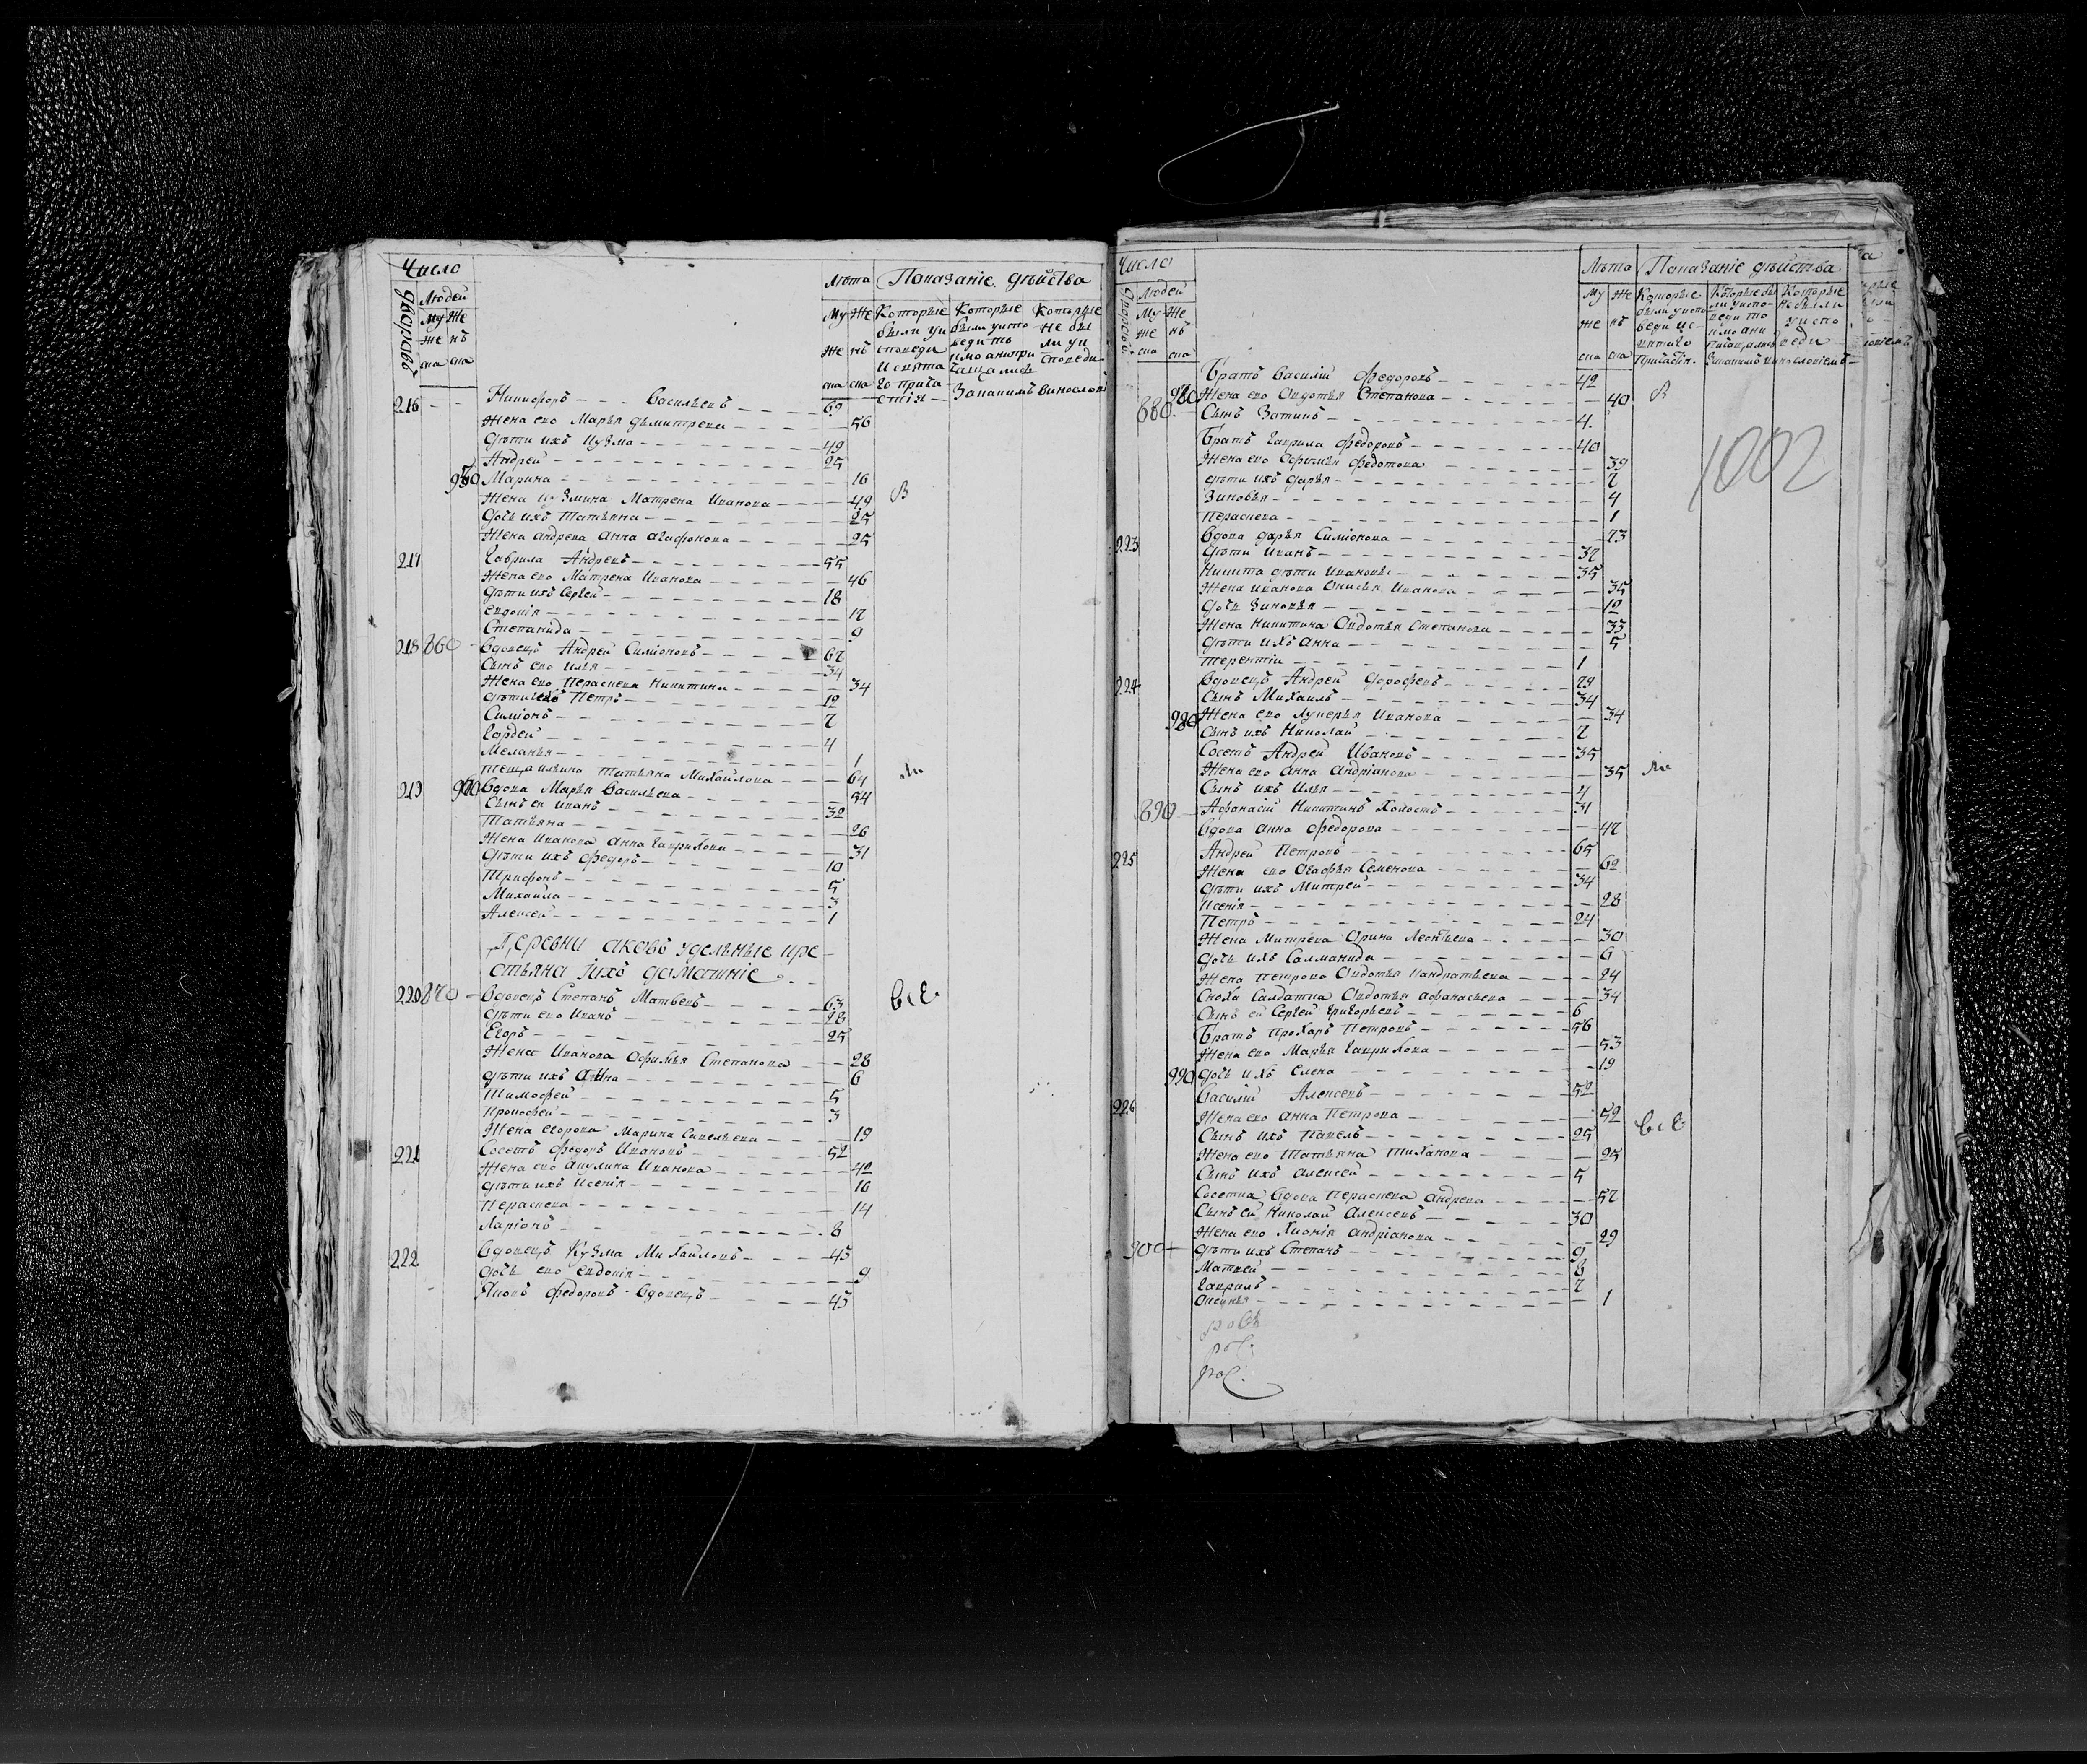 Число
Лѣта Показаніе дѣйства
дворовъ Людей
Му Же
же нъ
ска ска
Му Же
же нъ
ска ска
Которые были у исповеди и святаго причастія
Которые были у исповеди то
Которые не были у исповеди
За каким винословіем
216 Никифоръ Васильевъ 69
Жена ево Марья Дъмитрева 56
Дѣти ихъ Кузма 49
Андрей 25
Марина 16
Жена Кузмина Матрена Иванова 49
Дочь ихъ Татьяна 25
Жена Андрева Анна Агафонова 25
217 Гаврила Андревъ 55
Жена ево Матрена Иванова 46
Дѣти ихъ Сергей 18
Евдокія 17
Степанида 9
218 860 Вдовецъ Андрей Симіоновъ 67
Сынъ ево Илья 34
Жена ево Пераскева Никитина 34
Дѣти ихъ Петръ 12
Симіонъ 7
Гордей 4
Меланья 1
Теща Ильина Татьяна Михайлова 64
219 Вдова Марья Васильева 54
Сынъ ея Иванъ 32
Татьяна 26
Жена Иванова Анна Гаврилова 31
Дѣти ихъ Федоръ 10
Трифонъ 5
Михайла 3
Алексей 1
Деревни Аковъ удельные кре-
стьяна ихъ домашніе
220 870 Вдовецъ Степанъ Матвевъ 63 Все
Дѣти ево Иванъ 28
Егоръ 25
Жена Иванова Офимья Степанова 28
Дѣти ихъ Анна 6
Тимофей 5
Прокофей 3
Жена Егорова Марина Савельева 19
221 Сосетъ Федоръ Ивановъ 52
Жена ево Акулина Иванова 42
Дѣти ихъ Ксенія 16
Пераскева 14
Ларіонъ 8
222 Вдовецъ Кузма Михайловъ 45
Дочь ево Евдокія 9
Яковъ Федоровъ Вдовецъ 45
Число
Лѣта Показаніе дѣйства
Людей
Му Же
же нъ
ска ска
Му Же
же нъ
ска ска
Братъ Василій Федоровъ 42
880 Жена ево Овдотья Степанова 40
Сынъ 4
Братъ Гаврила Федоровъ 40
Жена ево Офимья Федотова 39
Дѣти ихъ Дарья 7
Зиновья 4
Пераскева 1
1002
223 Вдова Дарья Симіонова 73
Дѣти Иванъ 37
Никита дѣти Ивановы 35
Жена Иванова Онисья Иванова 35
Дочь Зиновья 12
Жена Никитина Овдотья Степанова 33
Дѣти ихъ Анна 5
Терентій 1
224 Вдовецъ Андрей Дорофевъ 79
Сынъ Михаилъ 34
980 Жена ево Лукерья Иванова 34
Сынъ ихъ Николай 7
Сосетъ Андрей Ивановъ 35
Жена ево Анна Андріанова 35
Сынъ ихъ Илья 4
890 Афонасій Никитинъ Холостъ 31
Вдова Анна Федорова 47
225 Андрей Петровъ 65
Жена ево Огафья Семенова 62
Дѣти ихъ Митрей 34
Ксенія 28
Петръ 24
Жена Митрева Орина Леонтьева 30
Дочь ихъ Салманида 6
Жена Петрова Овдотья Кандратьева 24
Сноха Салдатка Овдотья Афанасьева 34
Сынъ ей Сергей Григорьевъ 6
Братъ Прохаръ Петровъ 56
Жена ево Марья Гаврилова 53
990 Дочь ихъ Елена 19
226 Василій Алексевъ 52
Жена ево Анна Петрова 52
Сынъ ихъ Павелъ 25 Все
Жена ево Татьяна Тиханова 25
Сынъ ихъ Алексей 5
Сосетка Вдова Пераскева Андрева 57
Сынъ ей Николай Алексевъ 30
Жена ево Хионія Андріанова 29
900 Дѣти ихъ Степанъ 9
Матвей 8
Гаврилъ 7
1